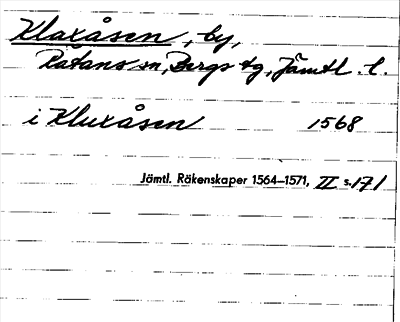 Klaxåsen, by,
Rätans sn, Bergs tg, Jämtl. l.
i Kluxåsen 1568
Jämtl. Räkenskaper 1564–1571, II s. 171